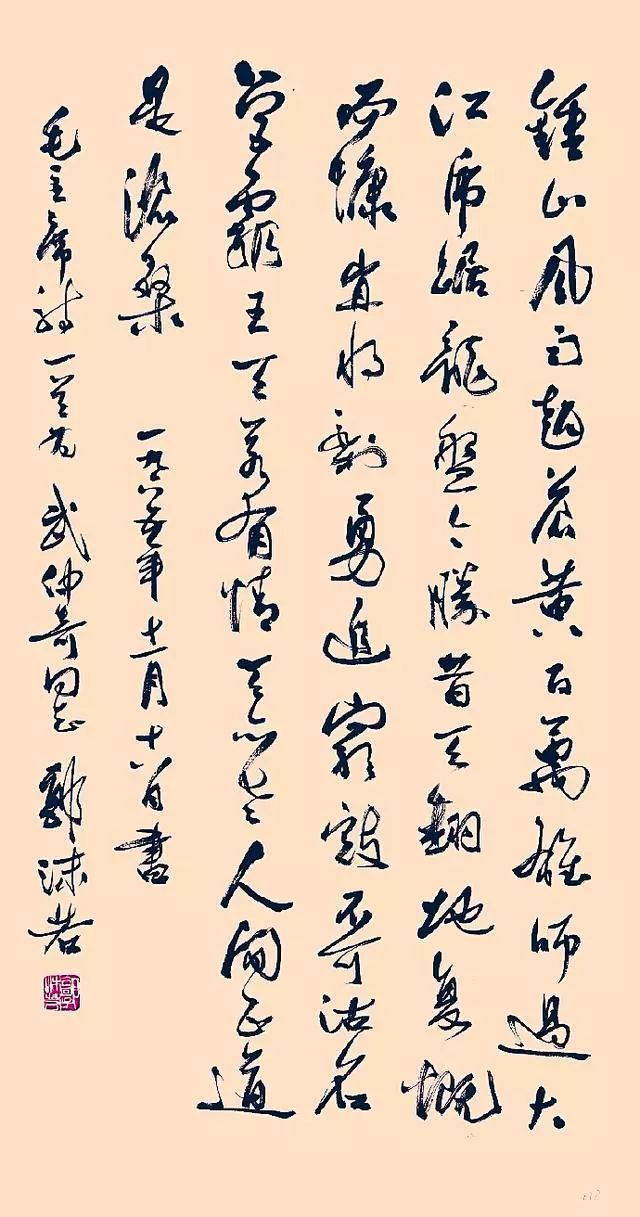 鍾山風雨起蒼黄百萬雄師過大
江虎踞龍盤今勝昔天翻地复慨
而慷宜将剩勇追窮寇不可沽名
學霸王天若有情天亦老人间正道
是滄桑 一九六五年十一月十八日書
毛主席詩一首为 武仲奇同志 郭沫若